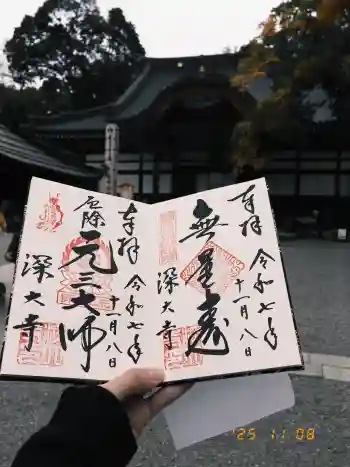 奉拝
令和七年
十一月八日
無量寿
深大寺
奉拝
令和七年
十一月八日
元三大師
厄除
深大寺
'25 11 08